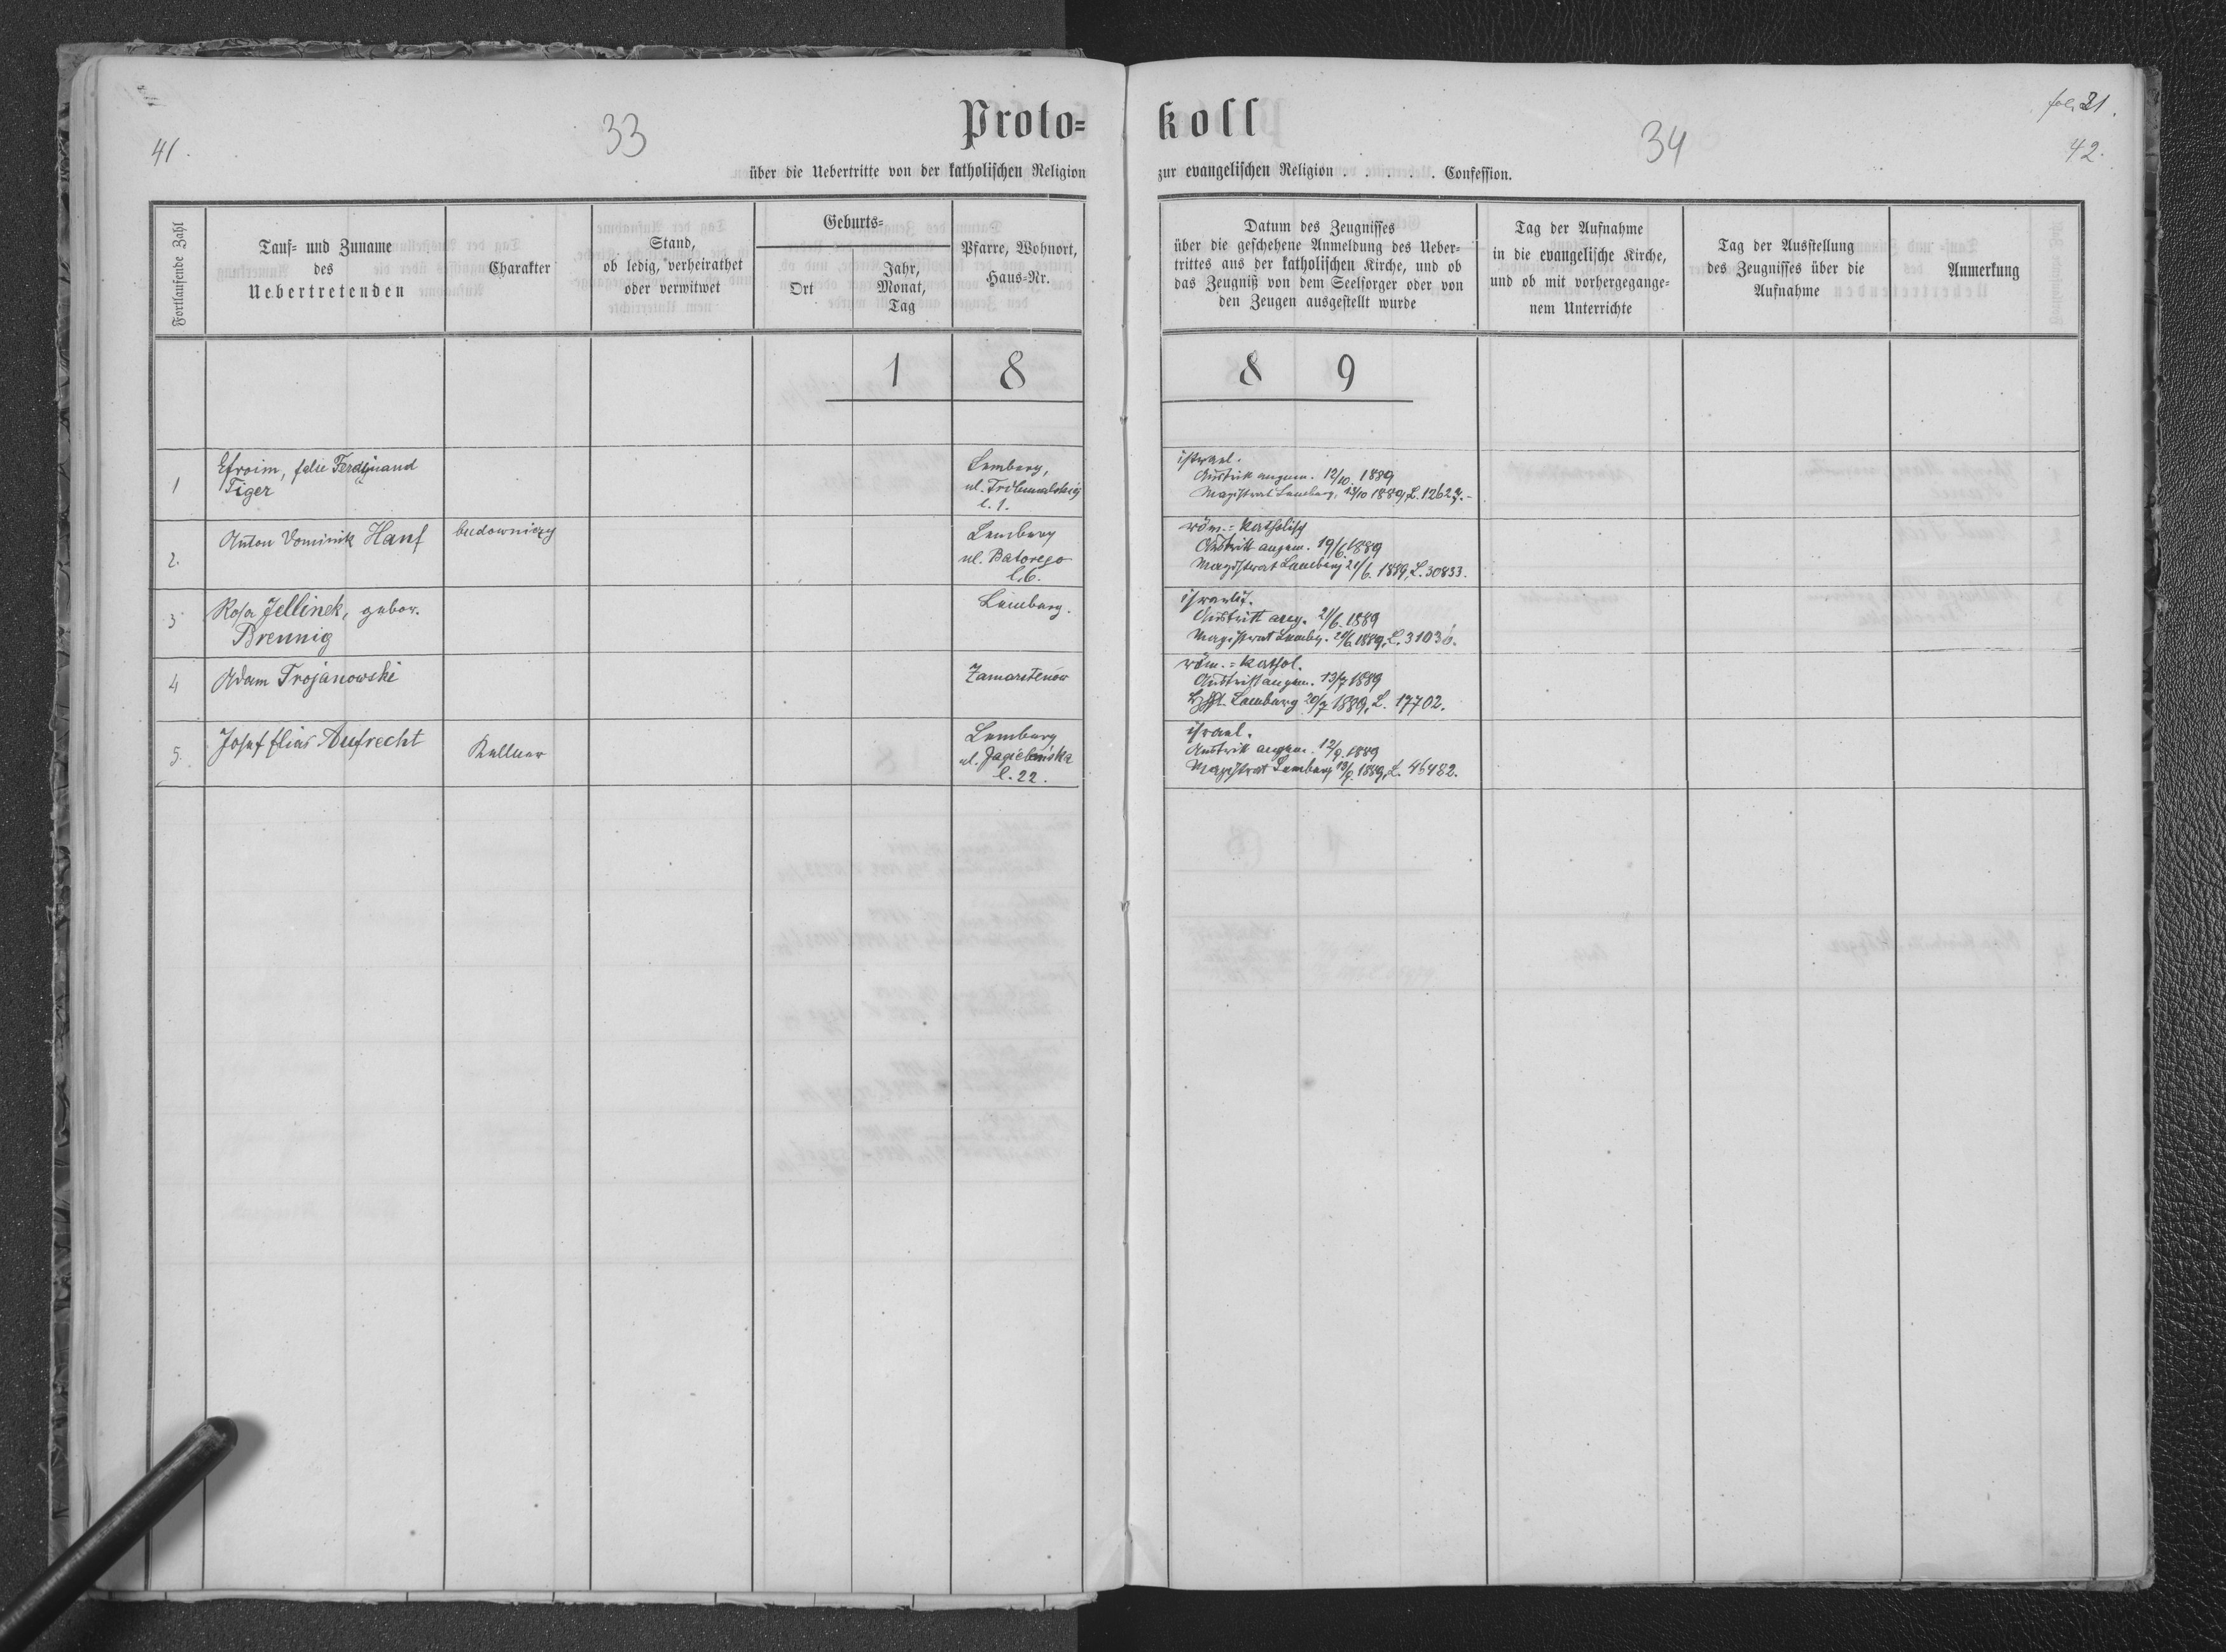 41.
33
Proto=
über die Uebertritte von der katholischen Religion
Fortlaufende Zahl
Tauf= und Zuname
des
Uebertretenden
Charakter
Stand,
ob ledig, verheirathet
oder verwitwet
Geburts=
Ort
Jahr,
Monat,
Tag
Pfarre, Wohnort,
Haus=Nr.
1 8
1
Efroim, false Ferdynand
Tiger
Lemberg,
ul. Trybunalskiej
l. 1.
2.
Anton Dominik Hanf
budowniczy
Lemberg
ul. Batorego
l. 6.
3
Rosa Jellinek, gebor.
Brennig
Lemberg.
4
Adam Trojanowski
Zamarstenów
5.
Josef Elias Aufrecht
Kellner
Lemberg
ul. Jagielońska
l. 22.
koll
34
fol. 21.
42.
zur evangelischen Religion . . . . . Confession.
Datum des Zeugnisses
über die geschehene Anmeldung des Ueber=
trittes aus der katholischen Kirche, und ob
das Zeugniß von dem Seelsorger oder von
den Zeugen ausgestellt wurde
Tag der Aufnahme
in die evangelische Kirche,
und ob mit vorhergegange=
nem Unterrichte
Tag der Ausstellung
des Zeugnisses über die
Aufnahme
Anmerkung
8 9
israel.
Austritt angem. 12/10. 1889
Magistrat Lemberg, 1889, L.
röm.=katholisch
Austritt angem. 19/6. 1889
Magistrat Lemberg 21/6. 1889, L. 30833.
israelit.
Austritt ang. 21/6. 1889
Magistrat Lemberg. 1889, L. 31036.
röm.=kathol.
Austritt angem. 13/7 1889
Lemberg 20/7 1889, L. 17702.
israel.
Austritt angem. 12/9. 1889
Magistrat Lemberg 13/9. 1889, L. 46482.